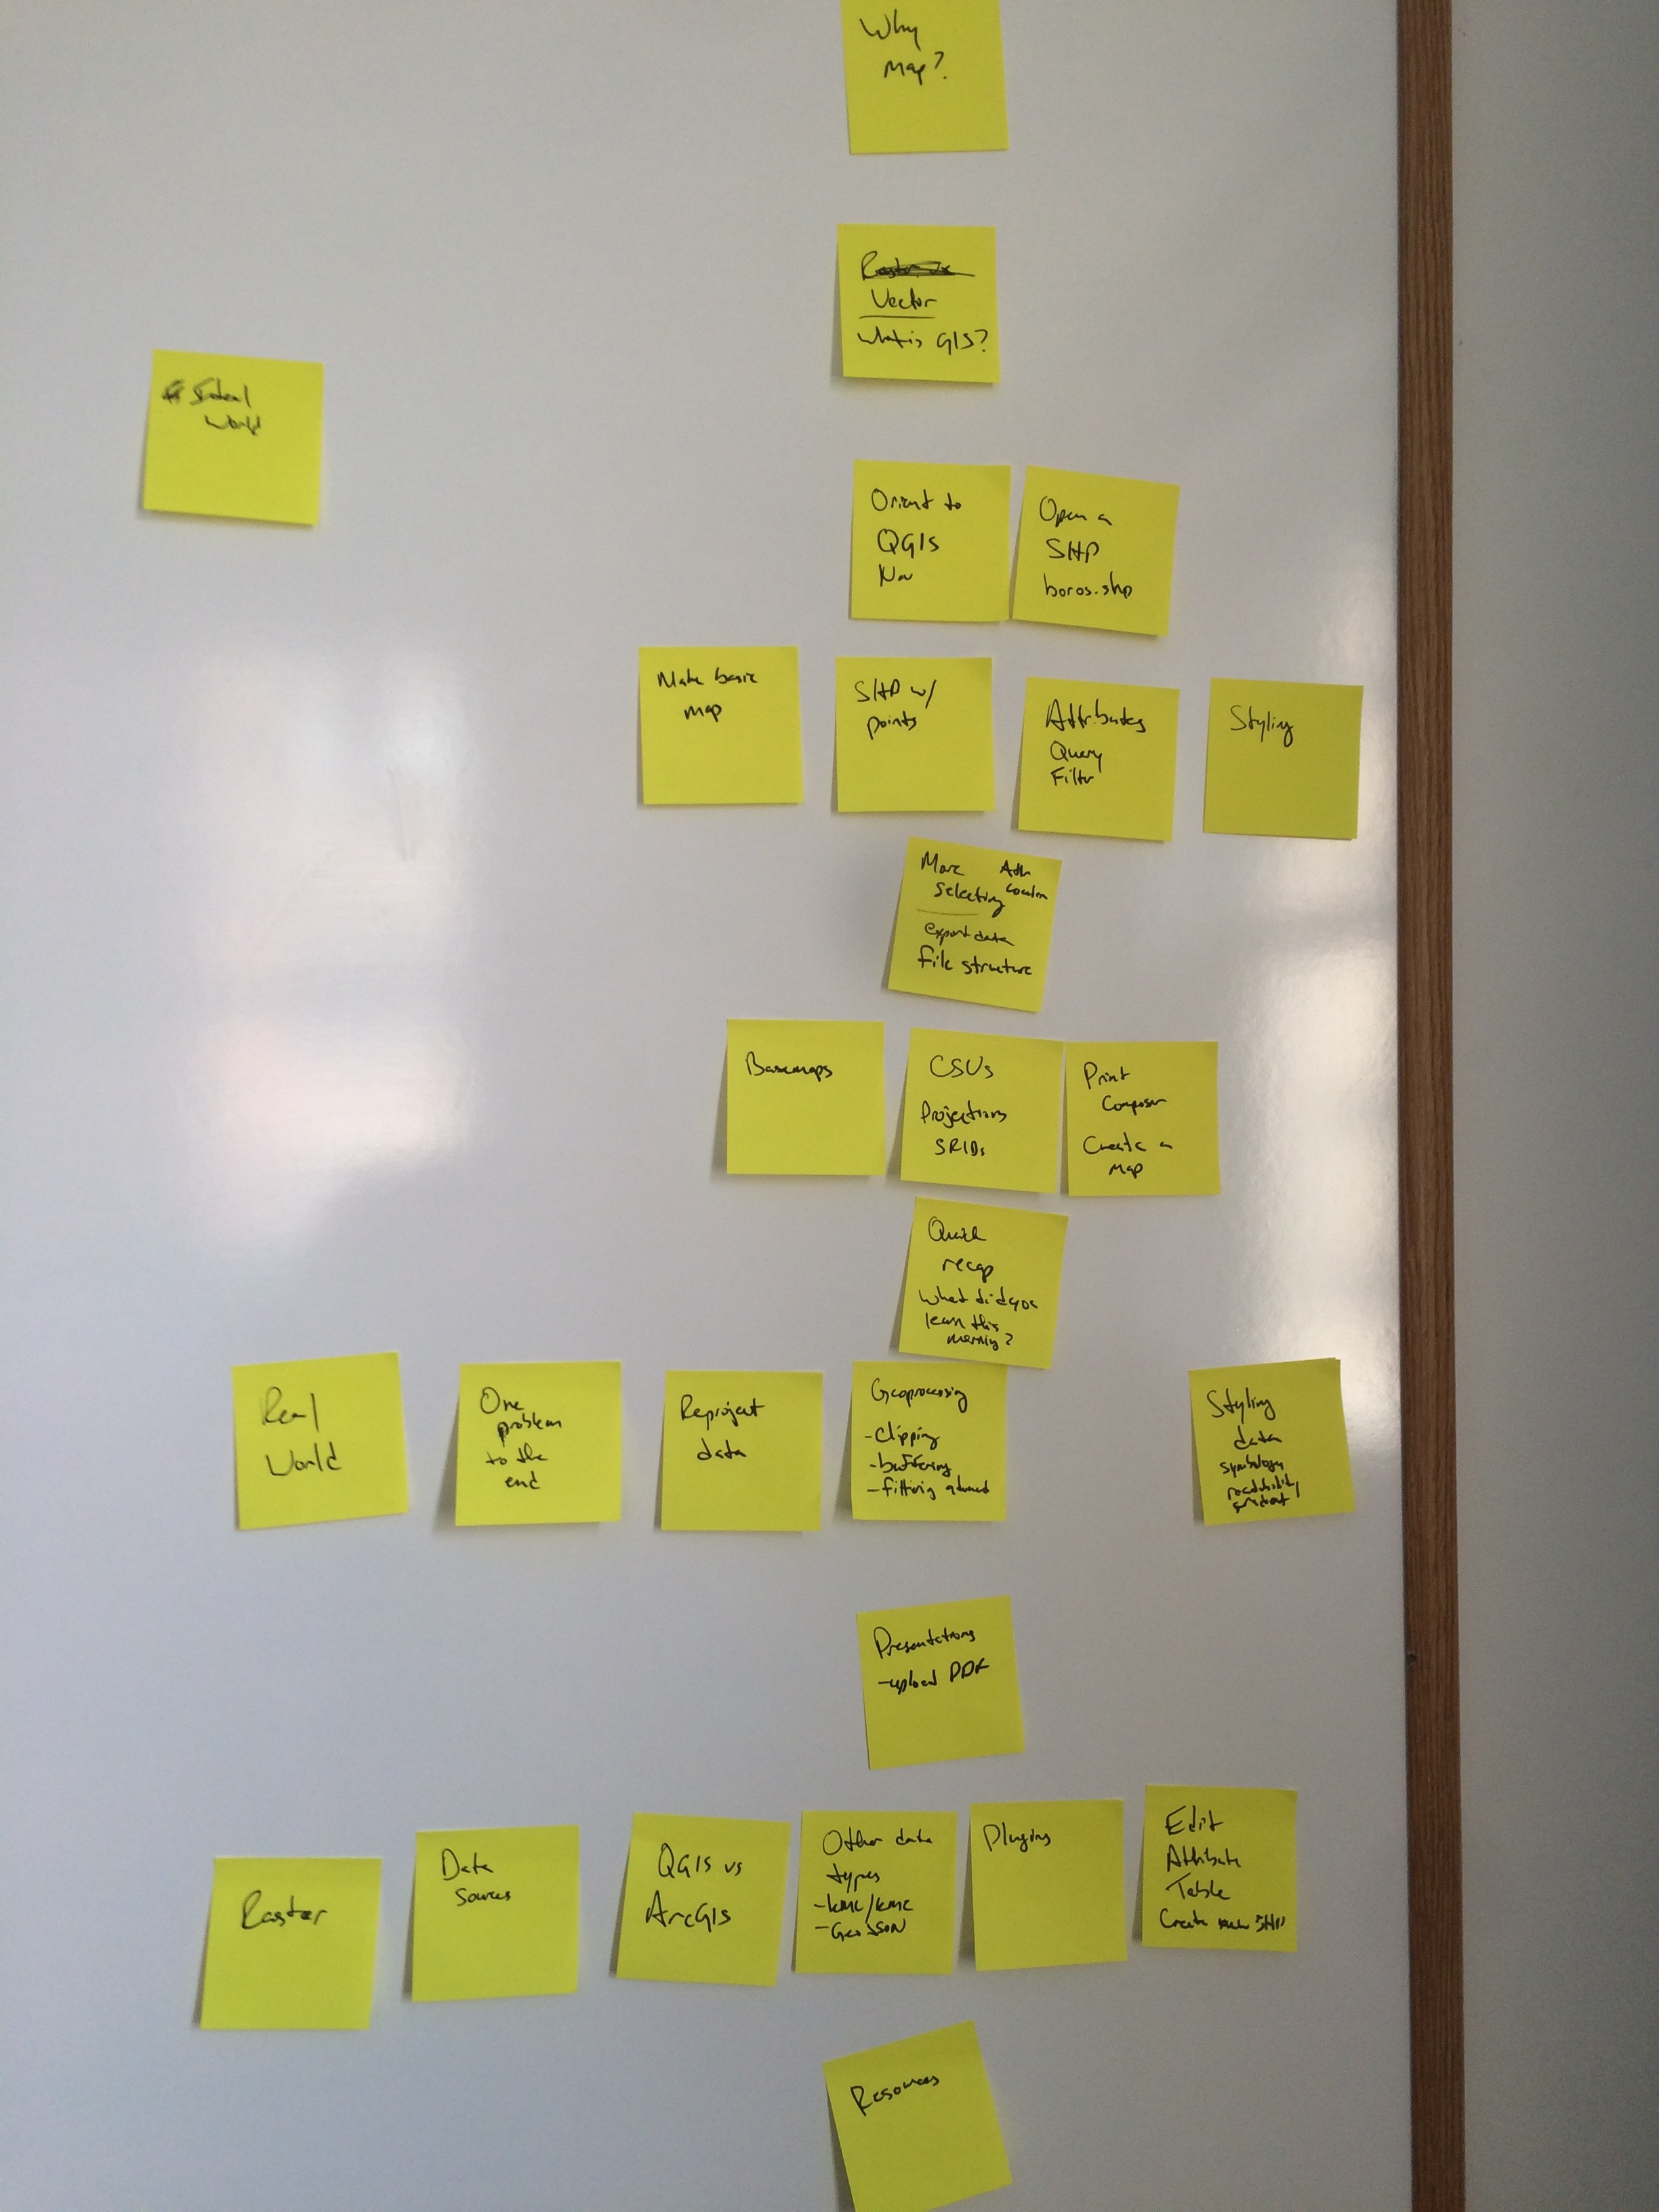 Why
Map?
Vector
what is GIS?
Ideal
World
Orient to
QGIS
Nav
Open a
SHP
boros.shp
Make basic
map
SHP w/
points
Attributes
Query
Filter
Styling
More Attr
Selecting Location
export data
file structure
Basemaps
CSVs
Projections
SRIDs
Print
Composer
Create a
Map
Quick
recap
What did you
learn this
morning?
Real
World
One
problem
to the
end
Reproject
data
Geoprocessing
- Clipping
- buffering
- filtering advanced
Styling
data
symbology
readability
gradient
Presentations
- upload PDF
Raster
Data
Sources
QGIS vs
ArcGIS
Other data
types
- KML/KMZ
- GeoJSON
Plugins
Edit
Attribute
Table
Create new SHP
Resources